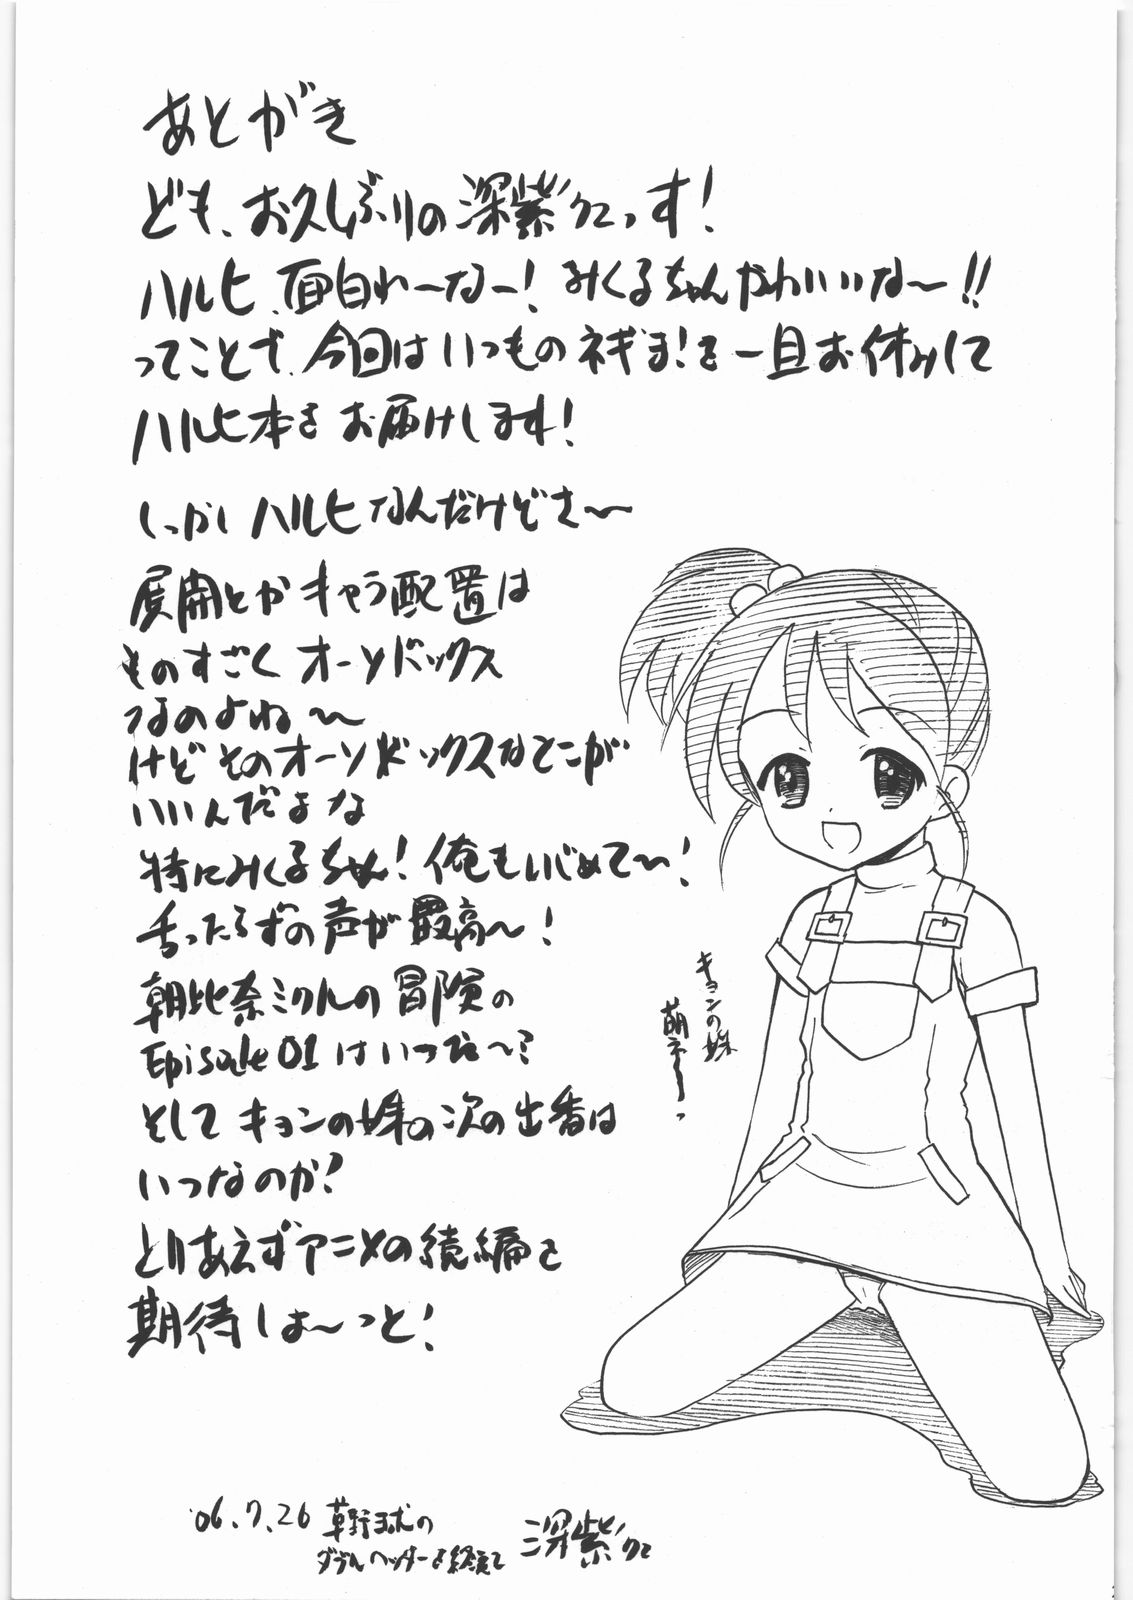 あとがき
ども、お久しぶりの深紫'クニっす!
ハルヒ、面白れーなー!みくるちゃんかわいいな〜!!
ってことで、今回はいつものネギま!を一旦お休みして
ハルヒ本をお届けします!
しっかしハルヒなんだけどさ〜
展開とかキャラ配置は
ものすごくオーソドックス
なのよね〜
けどそのオーソドックスなとこが
いいんだよな
特にみくるちゃん!俺もいじめて〜!
舌ったらずの声が最高〜!
朝比奈ミクルの冒険の
Episode 01 はいつだ〜?
そしてキョンの妹の次の出番は
いつなのか?
とりあえずアニメの続編を
期待しまーっと!
キョンの妹
萌え〜っ
'06.7.26 草野球の
ダブルヘッダーを経て 深紫'クニ